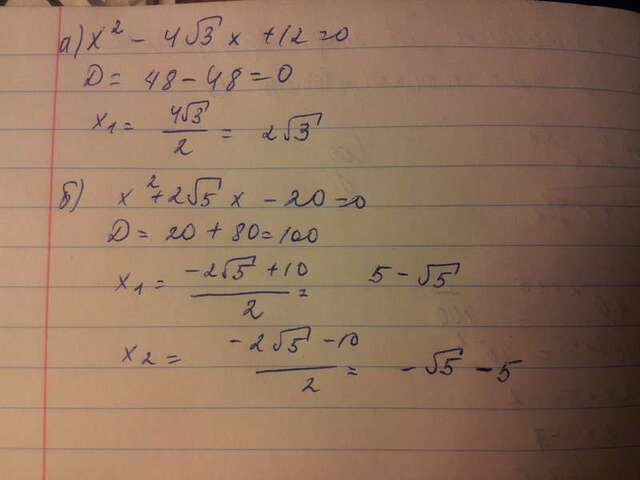 а) x² - 4√3 x + 12 = 0
D = 48 - 48 = 0
x₁ = 4√3/2 = 2√3
б) x² + 2√5 x - 20 = 0
D = 20 + 80 = 100
x₁ = (-2√5 + 10)/2 = 5 - √5
x₂ = (-2√5 - 10)/2 = -√5 - 5